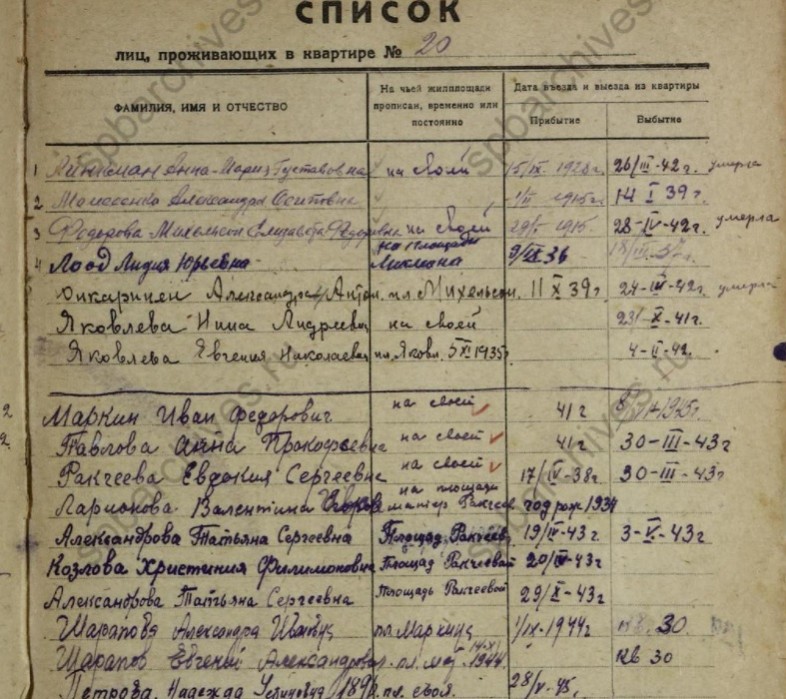 СПИСОК
лиц, проживающих в квартире № 20
ФАМИЛИЯ, ИМЯ И ОТЧЕСТВО
На чьей жилплощади прописан, временно или постоянно
Дата въезда и выезда из квартиры
Прибытие Выбытие
1 Анна-Мария Густавовна на своей 15/IX 1928г. 26/III-42г. умерла
2 Александра Осиповна 1915г. 14 I 39г.
3 Федорова Михельсон Елизавета на своей 29/I 1915. 28-IV-42г. умерла
4 Лоод Лидия Юрьевна на площади 36
Александра Антон. пл. Михельсон. 11 X 39г. 24-III-42г. умерла
Яковлева Нина Андреевн на своей 23/X-41г.
Яковлева Евгения Николаевн пл. Яковл. 5 XI 1935г 4-II-42.
2 Маркин Иван Федорович на своей 41г
2. Павлова Анна Прокофьевна на своей 41г 30-III-43г
Ракчеева Евдокия Сергеевна на своей 17/IV-38г. 30-III-43г
Ларионова Валентина на площади матер Ракчеев год рож. 1934
Александрова Татьяна Сергеевна Площад Ракчеев 19/IV-43г. 3-V-43г.
Козлова Христиния Филимоновна Площад Ракчеевой 20/IV-43г
Александрова Татьяна Сергеевна Площадь Ракчеевой 29/X-43г
Шарапова Александра пл. Маркина 1/IX-1944г кв. 30
Шарапов Евгений Александров. пл. мат. 1944 кв 30
Петрова Надежда пл. своя. 28/V-45.
spbarchives.ru